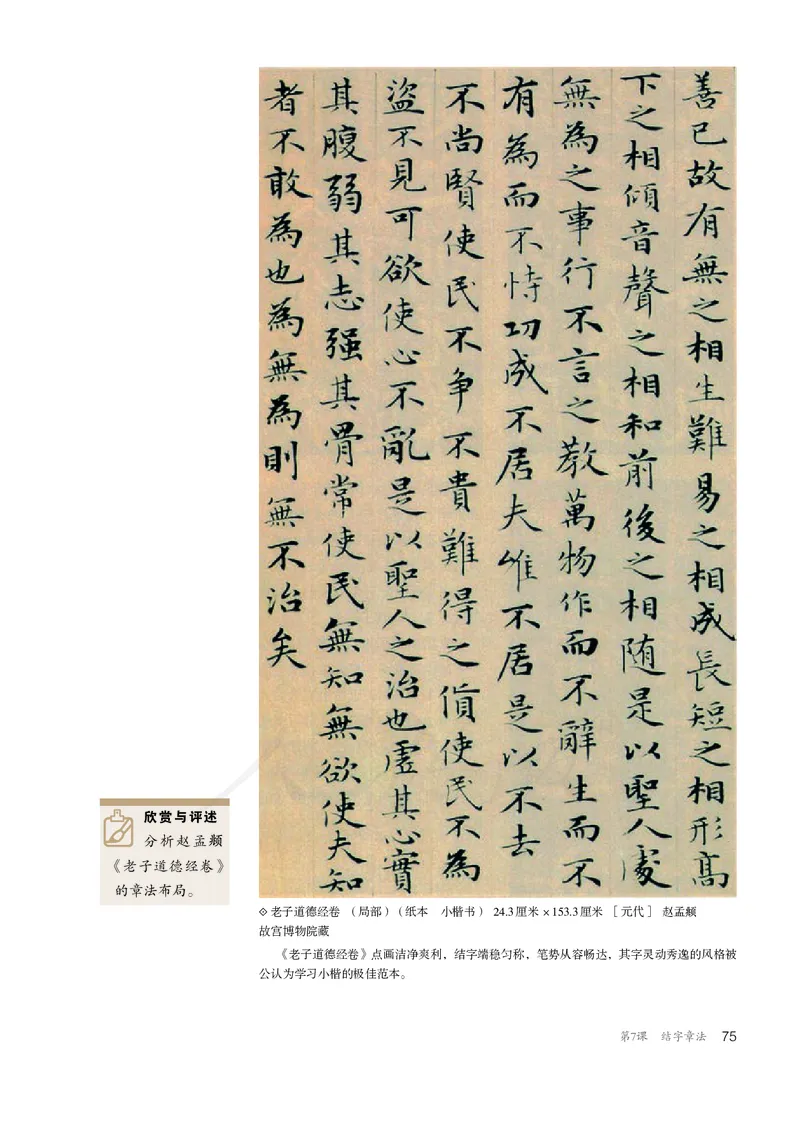 善已故有無之相生難易之相成長短之相形高
下之相傾音聲之相和前後之相随是以聖人處
無為之事行不言之教萬物作而不辭生而不
有為而不恃功成不居夫唯不居是以不去
不尚賢使民不争不貴難得之貨使民不為
盜不見可欲使心不亂是以聖人之治也虛其心實
其腹弱其志强其骨常使民無知無欲使夫知
者不敢為也為無為則無不治矣
欣赏与评述
分析赵孟頫
《老子道德经卷》
的章法布局。
老子道德经卷 （局部）（纸本 小楷书） 24.3厘米×153.3厘米 ［元代］ 赵孟頫
故宫博物院藏
《老子道德经卷》点画洁净爽利，结字端稳匀称，笔势从容畅达，其字灵动秀逸的风格被
公认为学习小楷的极佳范本。
第7课 结字章法 75